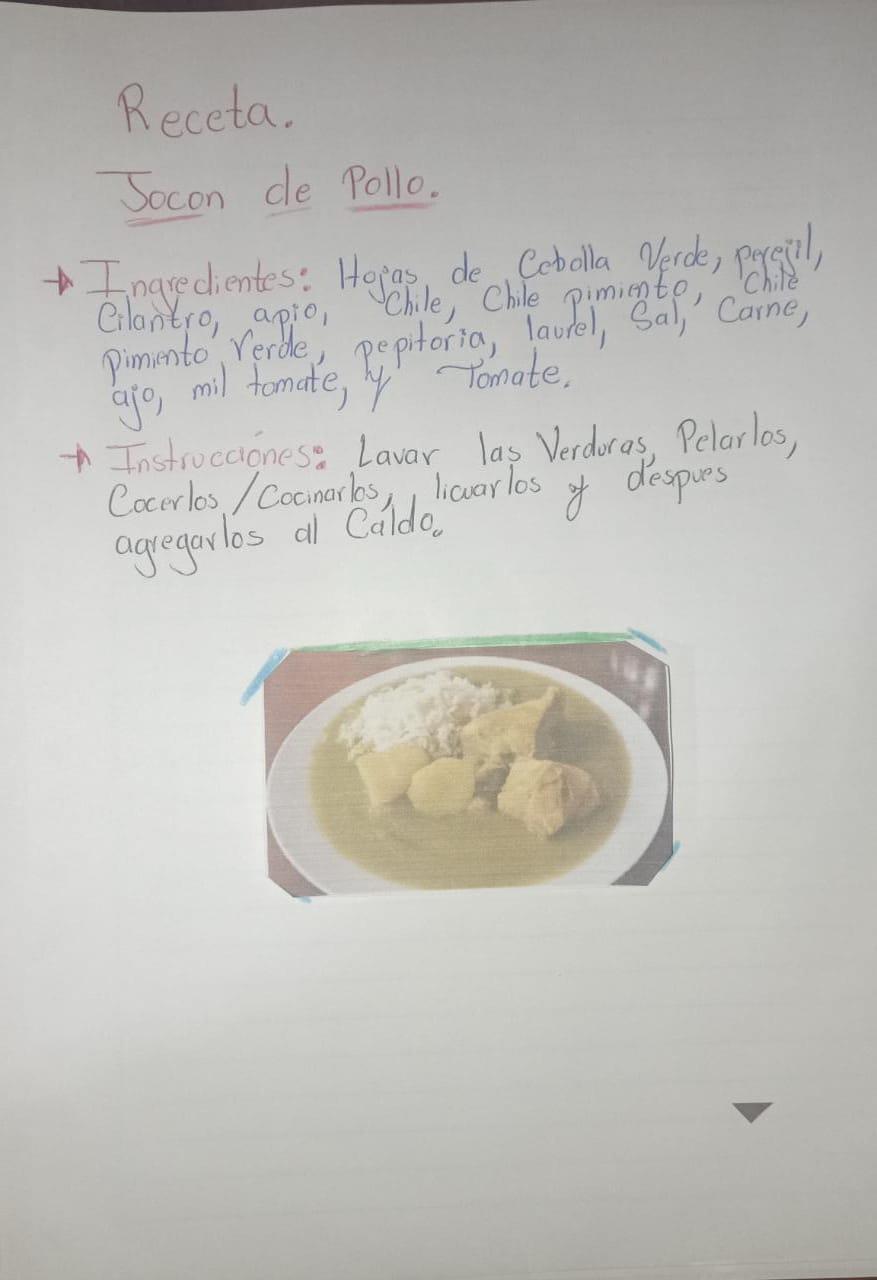 Receta.
Jocon de Pollo.
Ingredientes: Hojas de Cebolla Verde, perejil,
Cilantro, apio, Chile, Chile pimiento, Chile
pimiento Verde, pepitoria, laurel, Sal, Carne,
ajo, mil tomate, y Tomate.
Instrucciónes: Lavar las Verduras, Pelarlos,
Cocerlos/Cocinarlos, licuarlos y despues
agregarlos al Caldo.